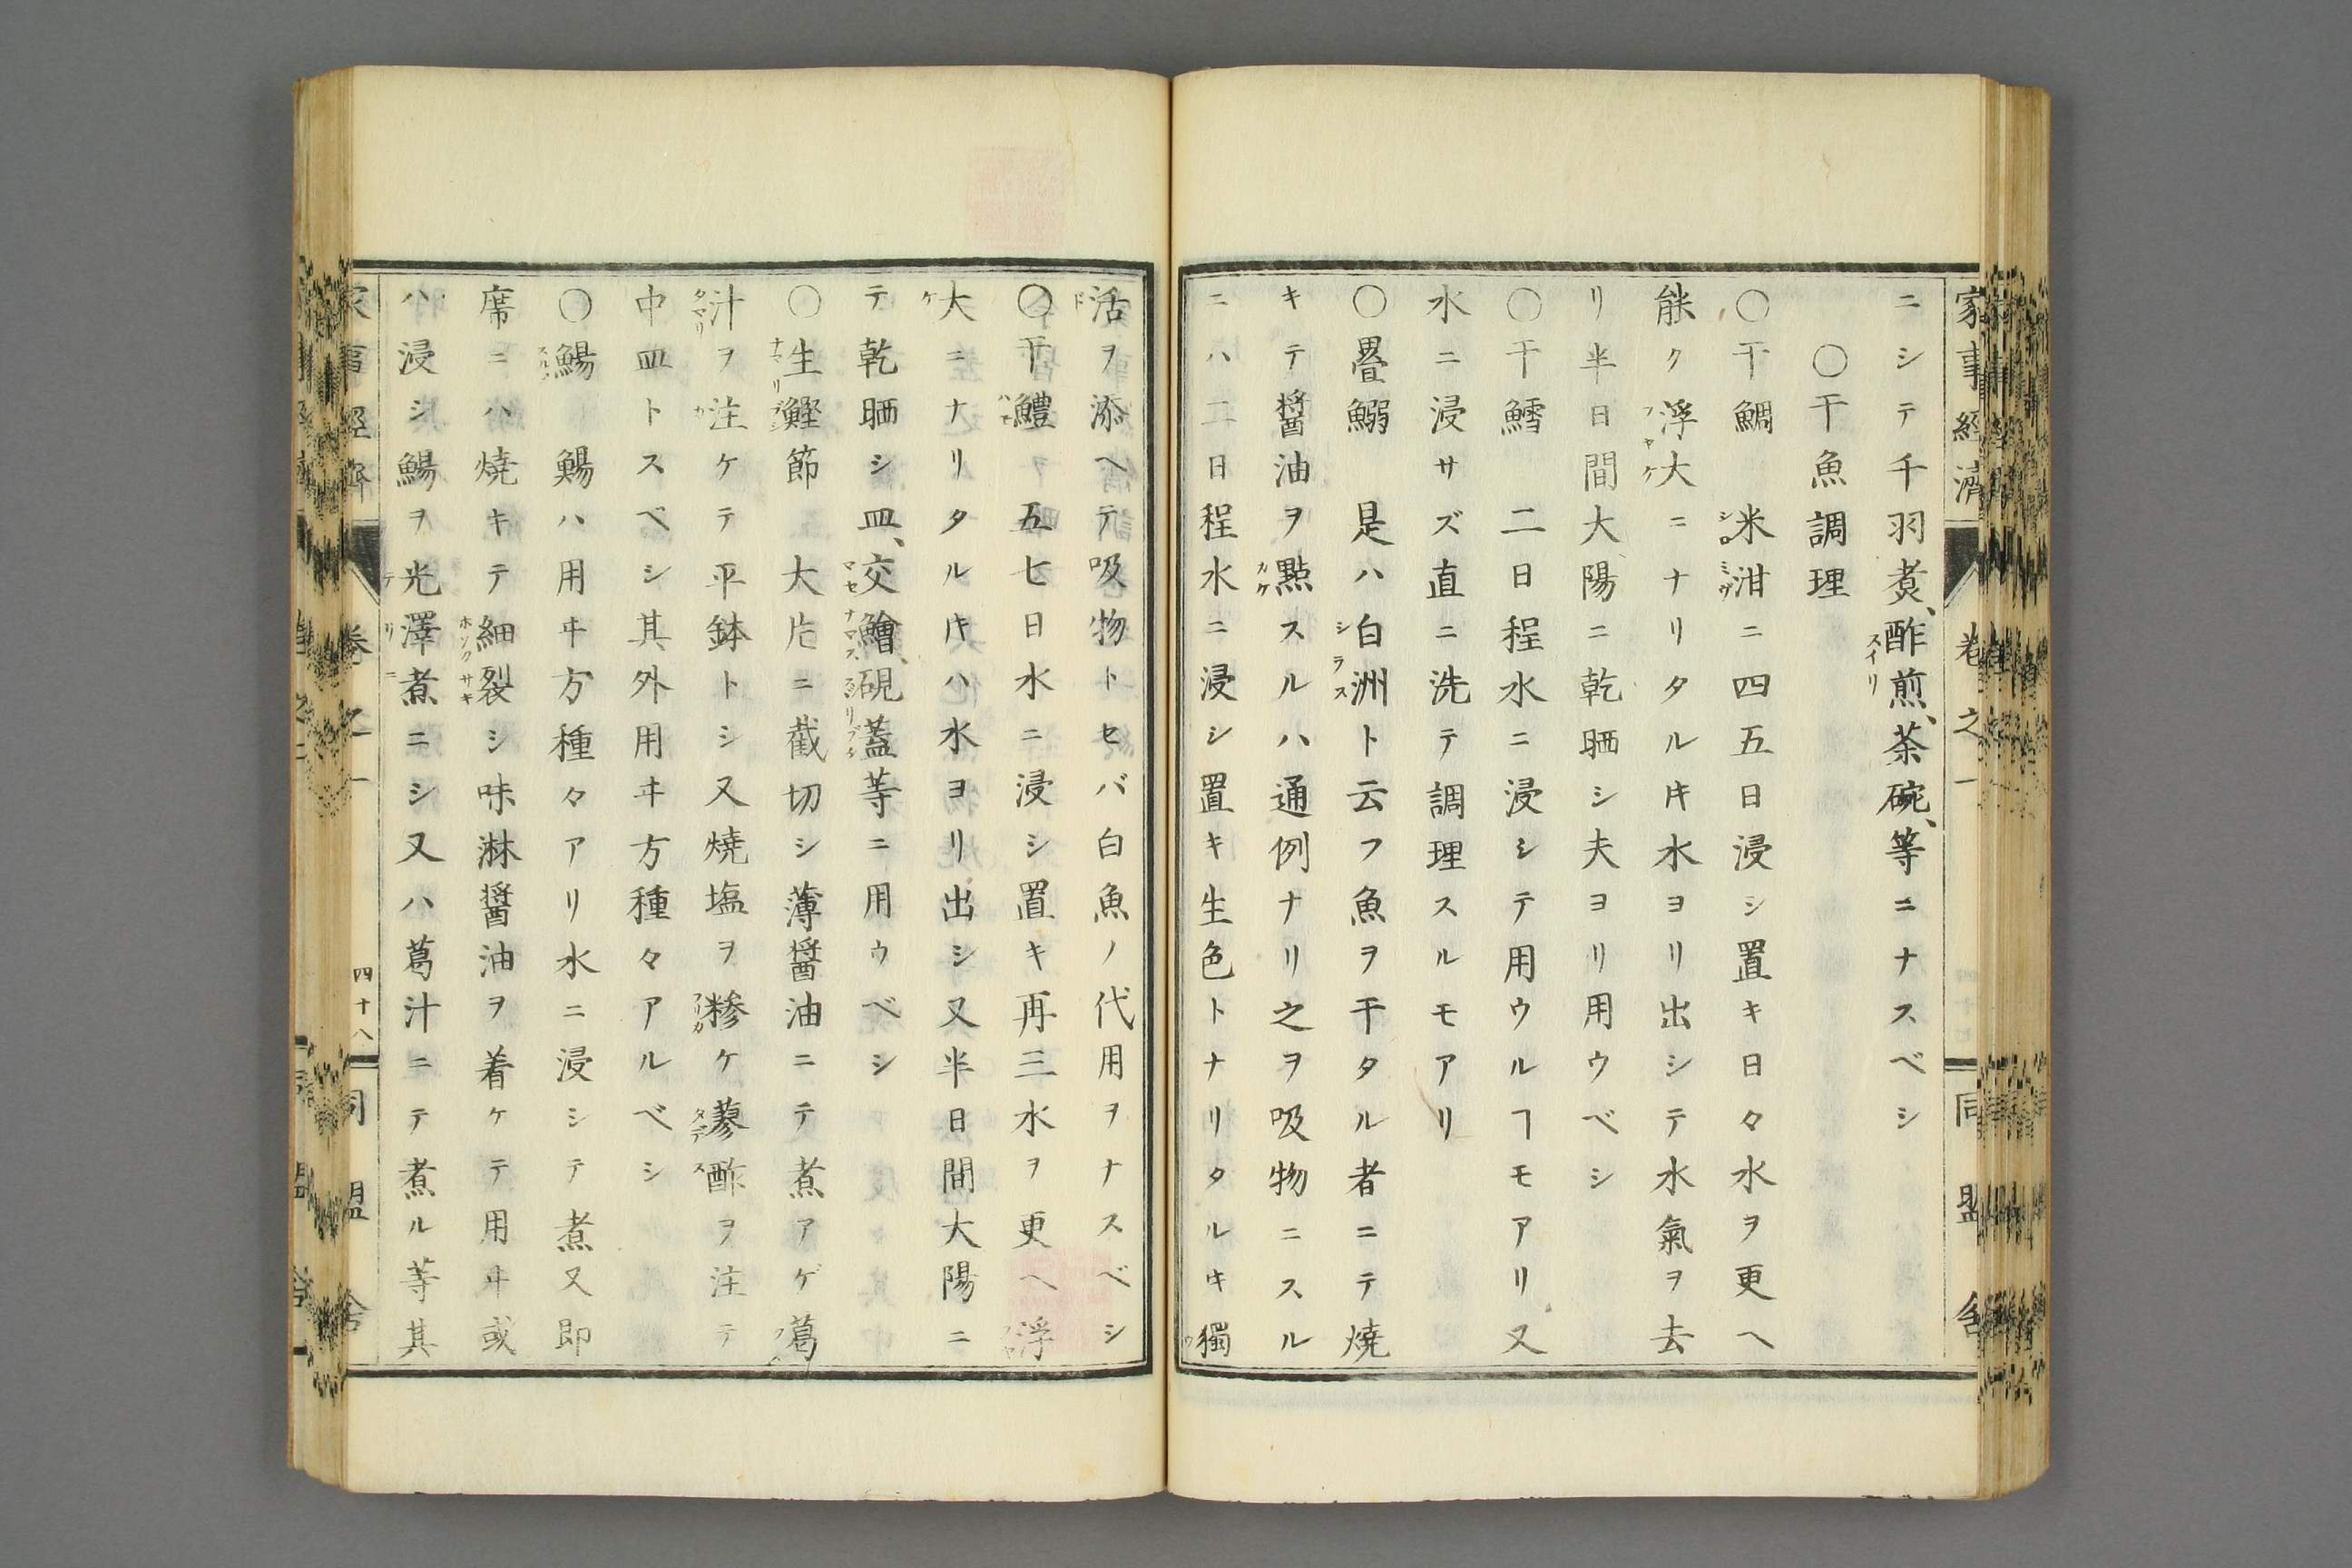 家事經濟 卷之一 同盟舎
ニシテ千羽煮、酢煎、茶碗、等ニナスベシ
〇干魚調理
〇干鯛 米泔ニ四五日浸シ置キ日々水ヲ更ヘ
能ク浮大ニナリタルキ水ヨリ出シテ水氣ヲ去
リ半日間大陽ニ乾晒シ夫ヨリ用ウベシ
〇干鱈 二日程水ニ浸シテ用ウルヿモアリ又
水ニ浸サズ直ニ洗テ調理スルモアリ
〇疊鰯 是ハ白洲ト云フ魚ヲ干タル者ニテ燒
キテ醤油ヲ點スルハ通例ナリ之ヲ吸物ニスル
ニハ二日程水ニ浸シ置キ生色トナリタルキ獨
活ヲ添ヘテ吸物トセバ白魚ノ代用ヲナスベシ
〇干鱧 五七日水ニ浸シ置キ再三水ヲ更ヘ浮
大ニナリタルキハ水ヨリ出シ又半日間大陽ニ
テ乾晒シ皿、交鱠、硯蓋等ニ用ウベシ
〇生鰹節 大片ニ截切シ薄醤油ニテ煮アゲ葛
汁ヲ注ケテ平鉢トシ又燒塩ヲ糝ケ蓼酢ヲ注テ
中皿トスベシ其外用ヰ方種々アルベシ
〇鯣 鯣ハ用ヰ方種々アリ水ニ浸シテ煮又即
席ニハ燒キテ細裂シ味淋醤油ヲ着ケテ用ヰ或
ハ浸シ鯣ヲ光澤煮ニシ又ハ葛汁ニテ煮ル等其
家事經濟 卷之一 四十八 同盟舎